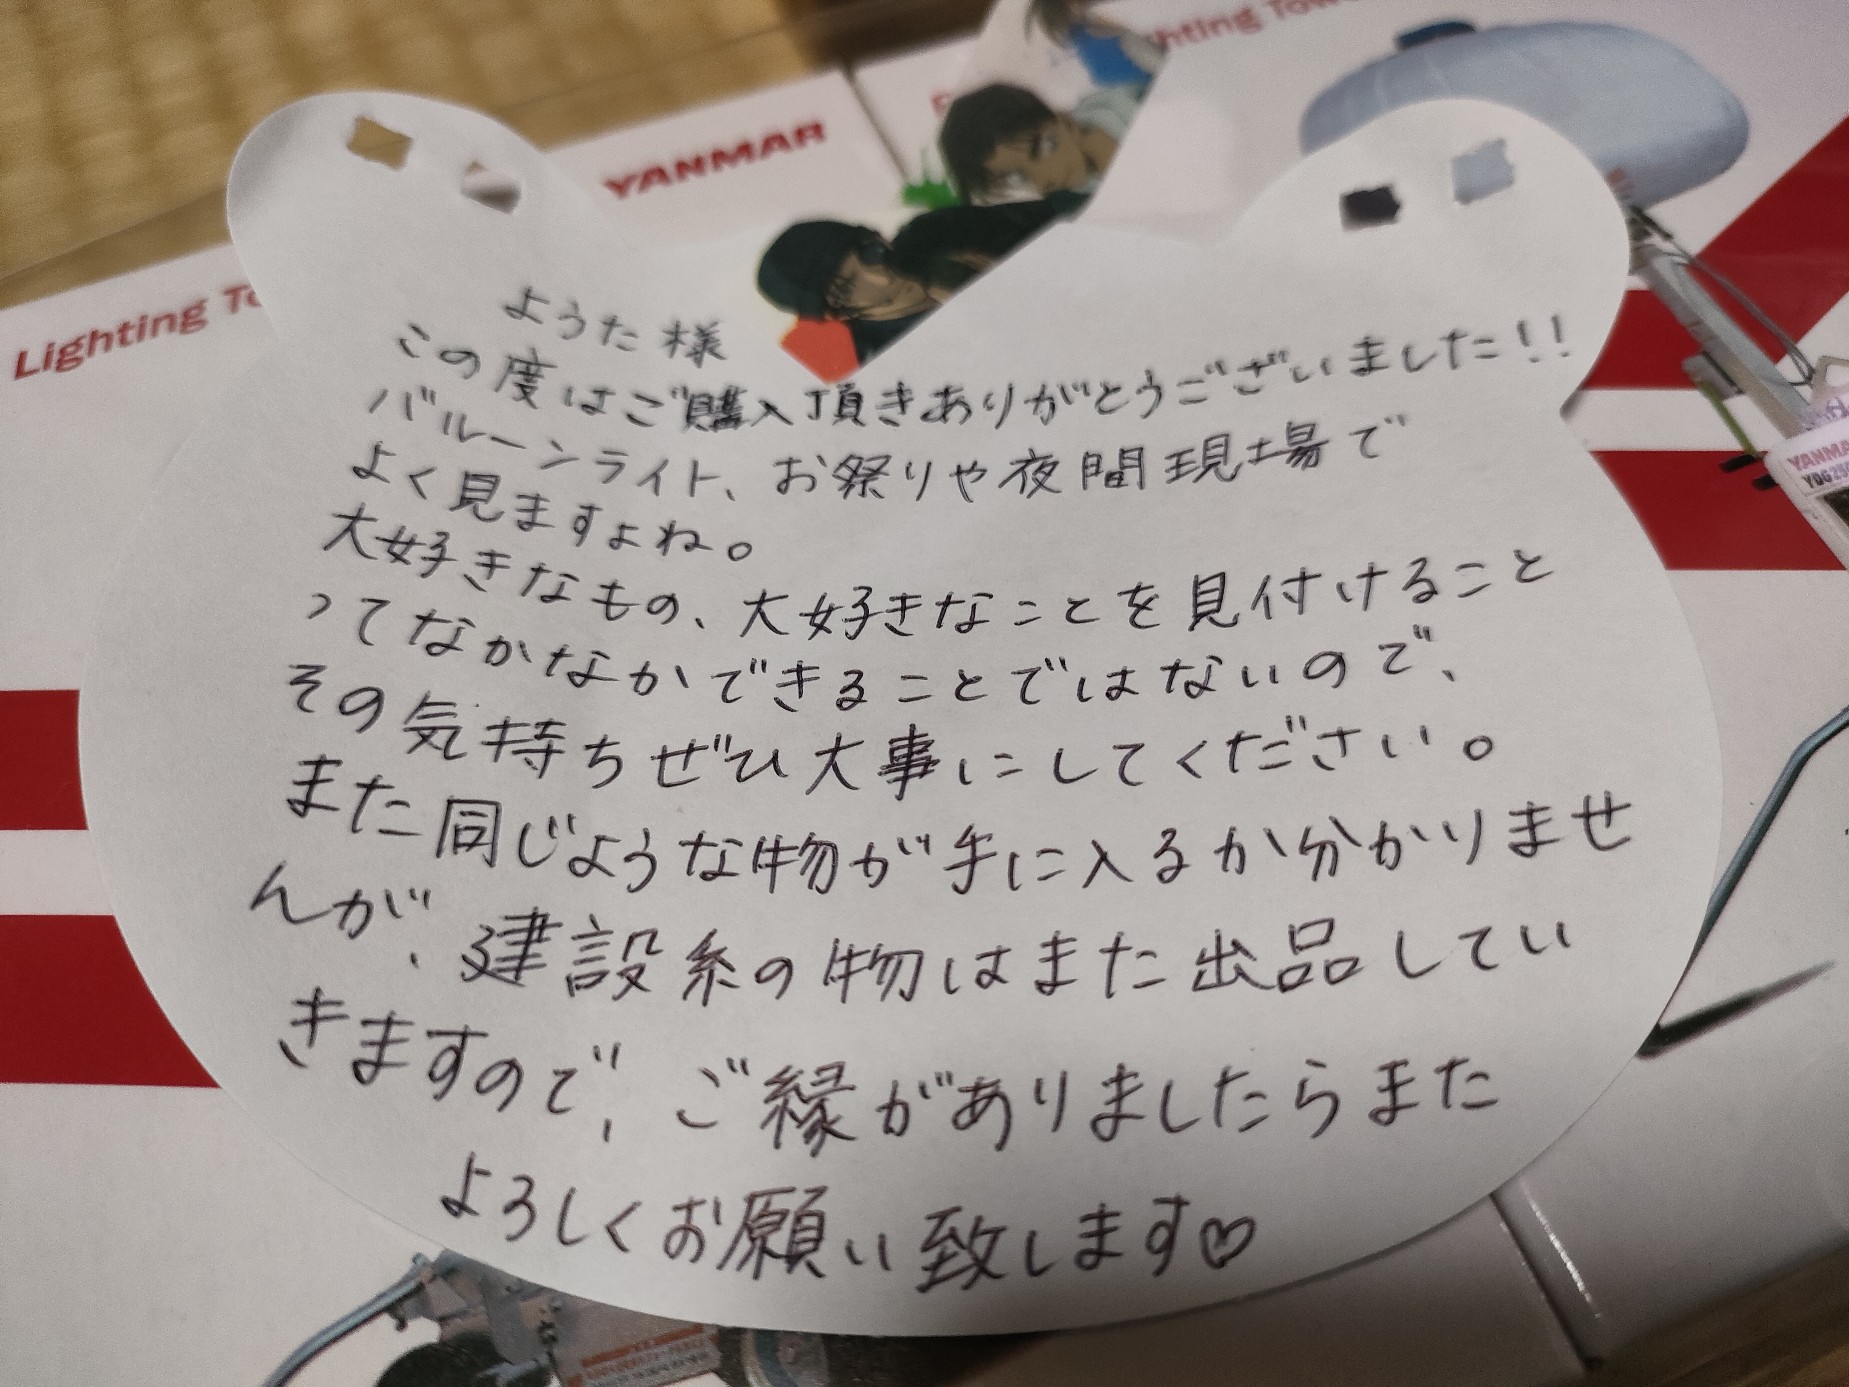 Lighting To
YANMAR
hting Tow
YANMA
YDG25
ようた様
この度はご購入頂きありがとうございました!!
バルーンライト、お祭りや夜間現場で
よく見ますよね。
大好きなもの、大好きなことを見付けること
ってなかなかできることではないので、
その気持ちぜひ大事にしてください。
また同じような物が手に入るか分かりませ
んが、建設系の物はまた出品してい
きますので、ご縁がありましたらまた
よろしくお願い致します♡